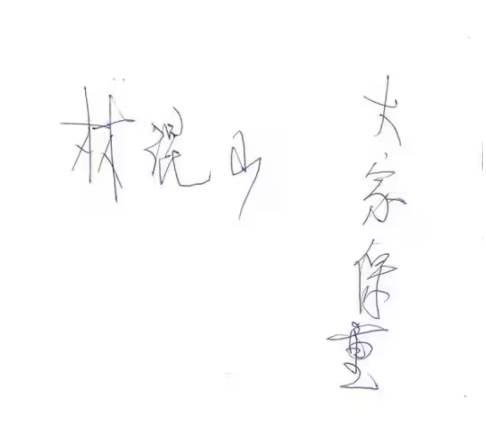 林山
大家保重